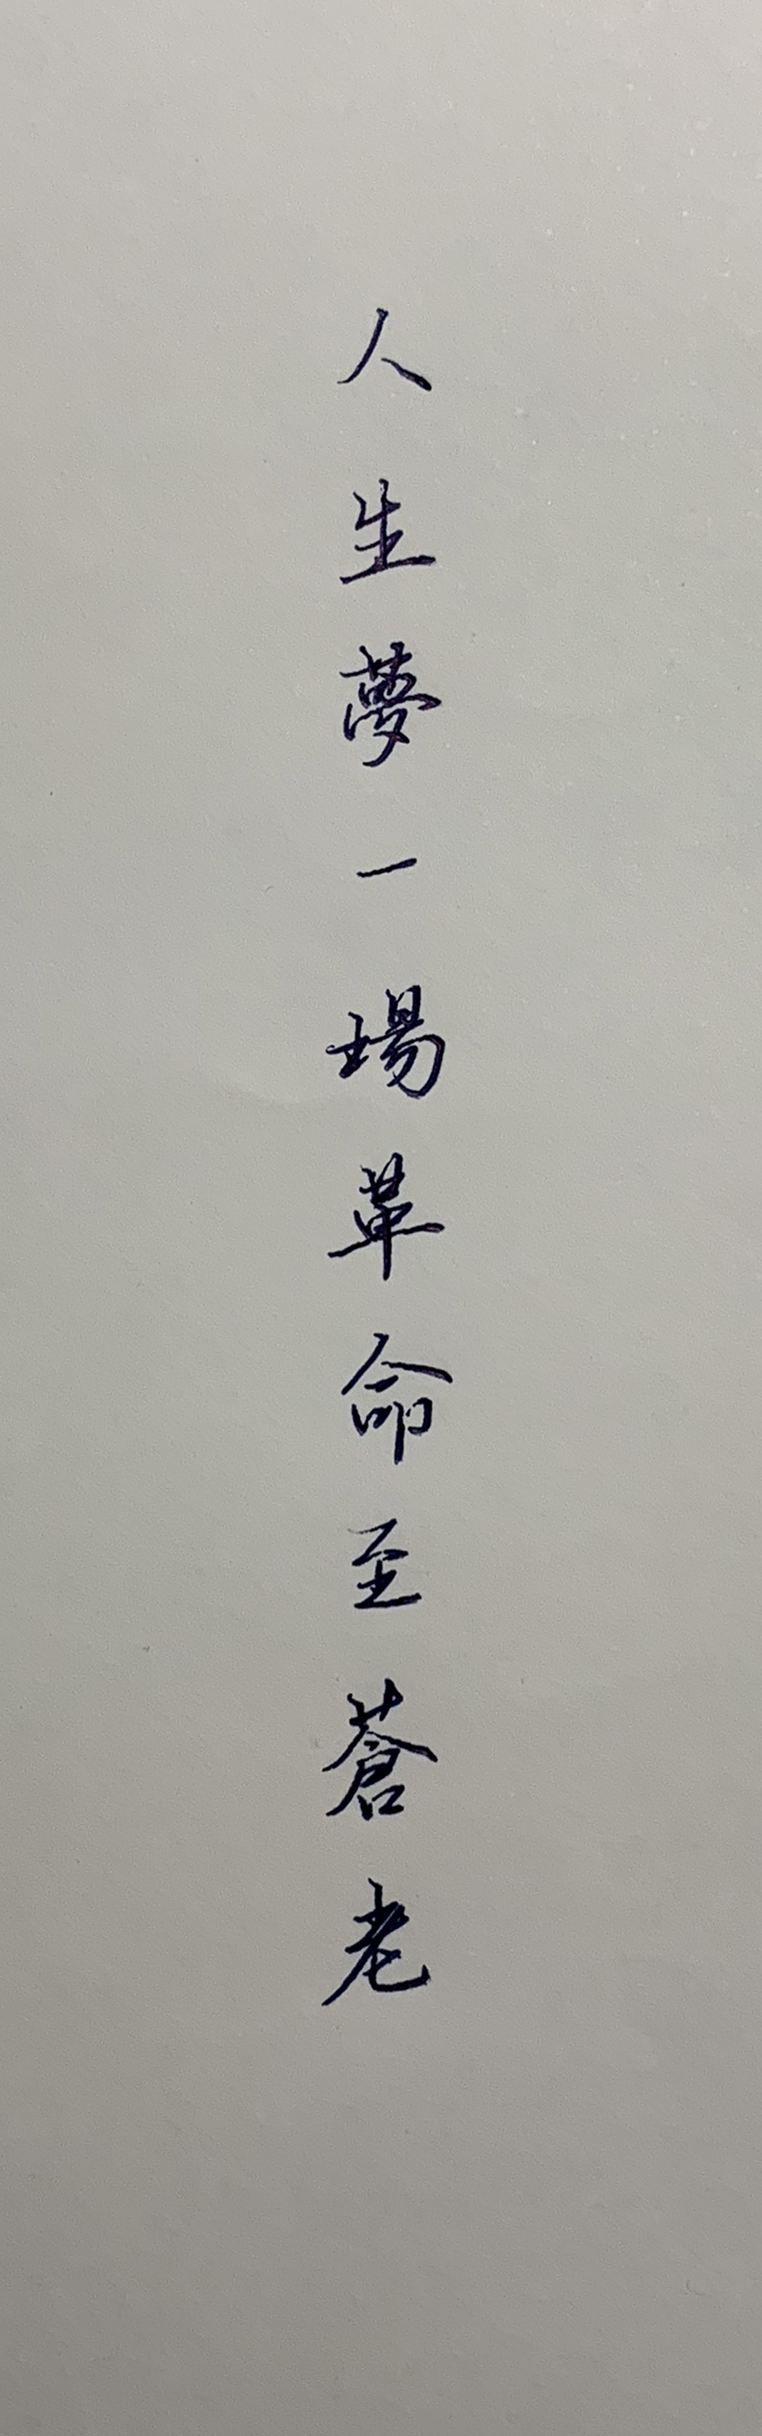 人生夢一場革命至蒼老